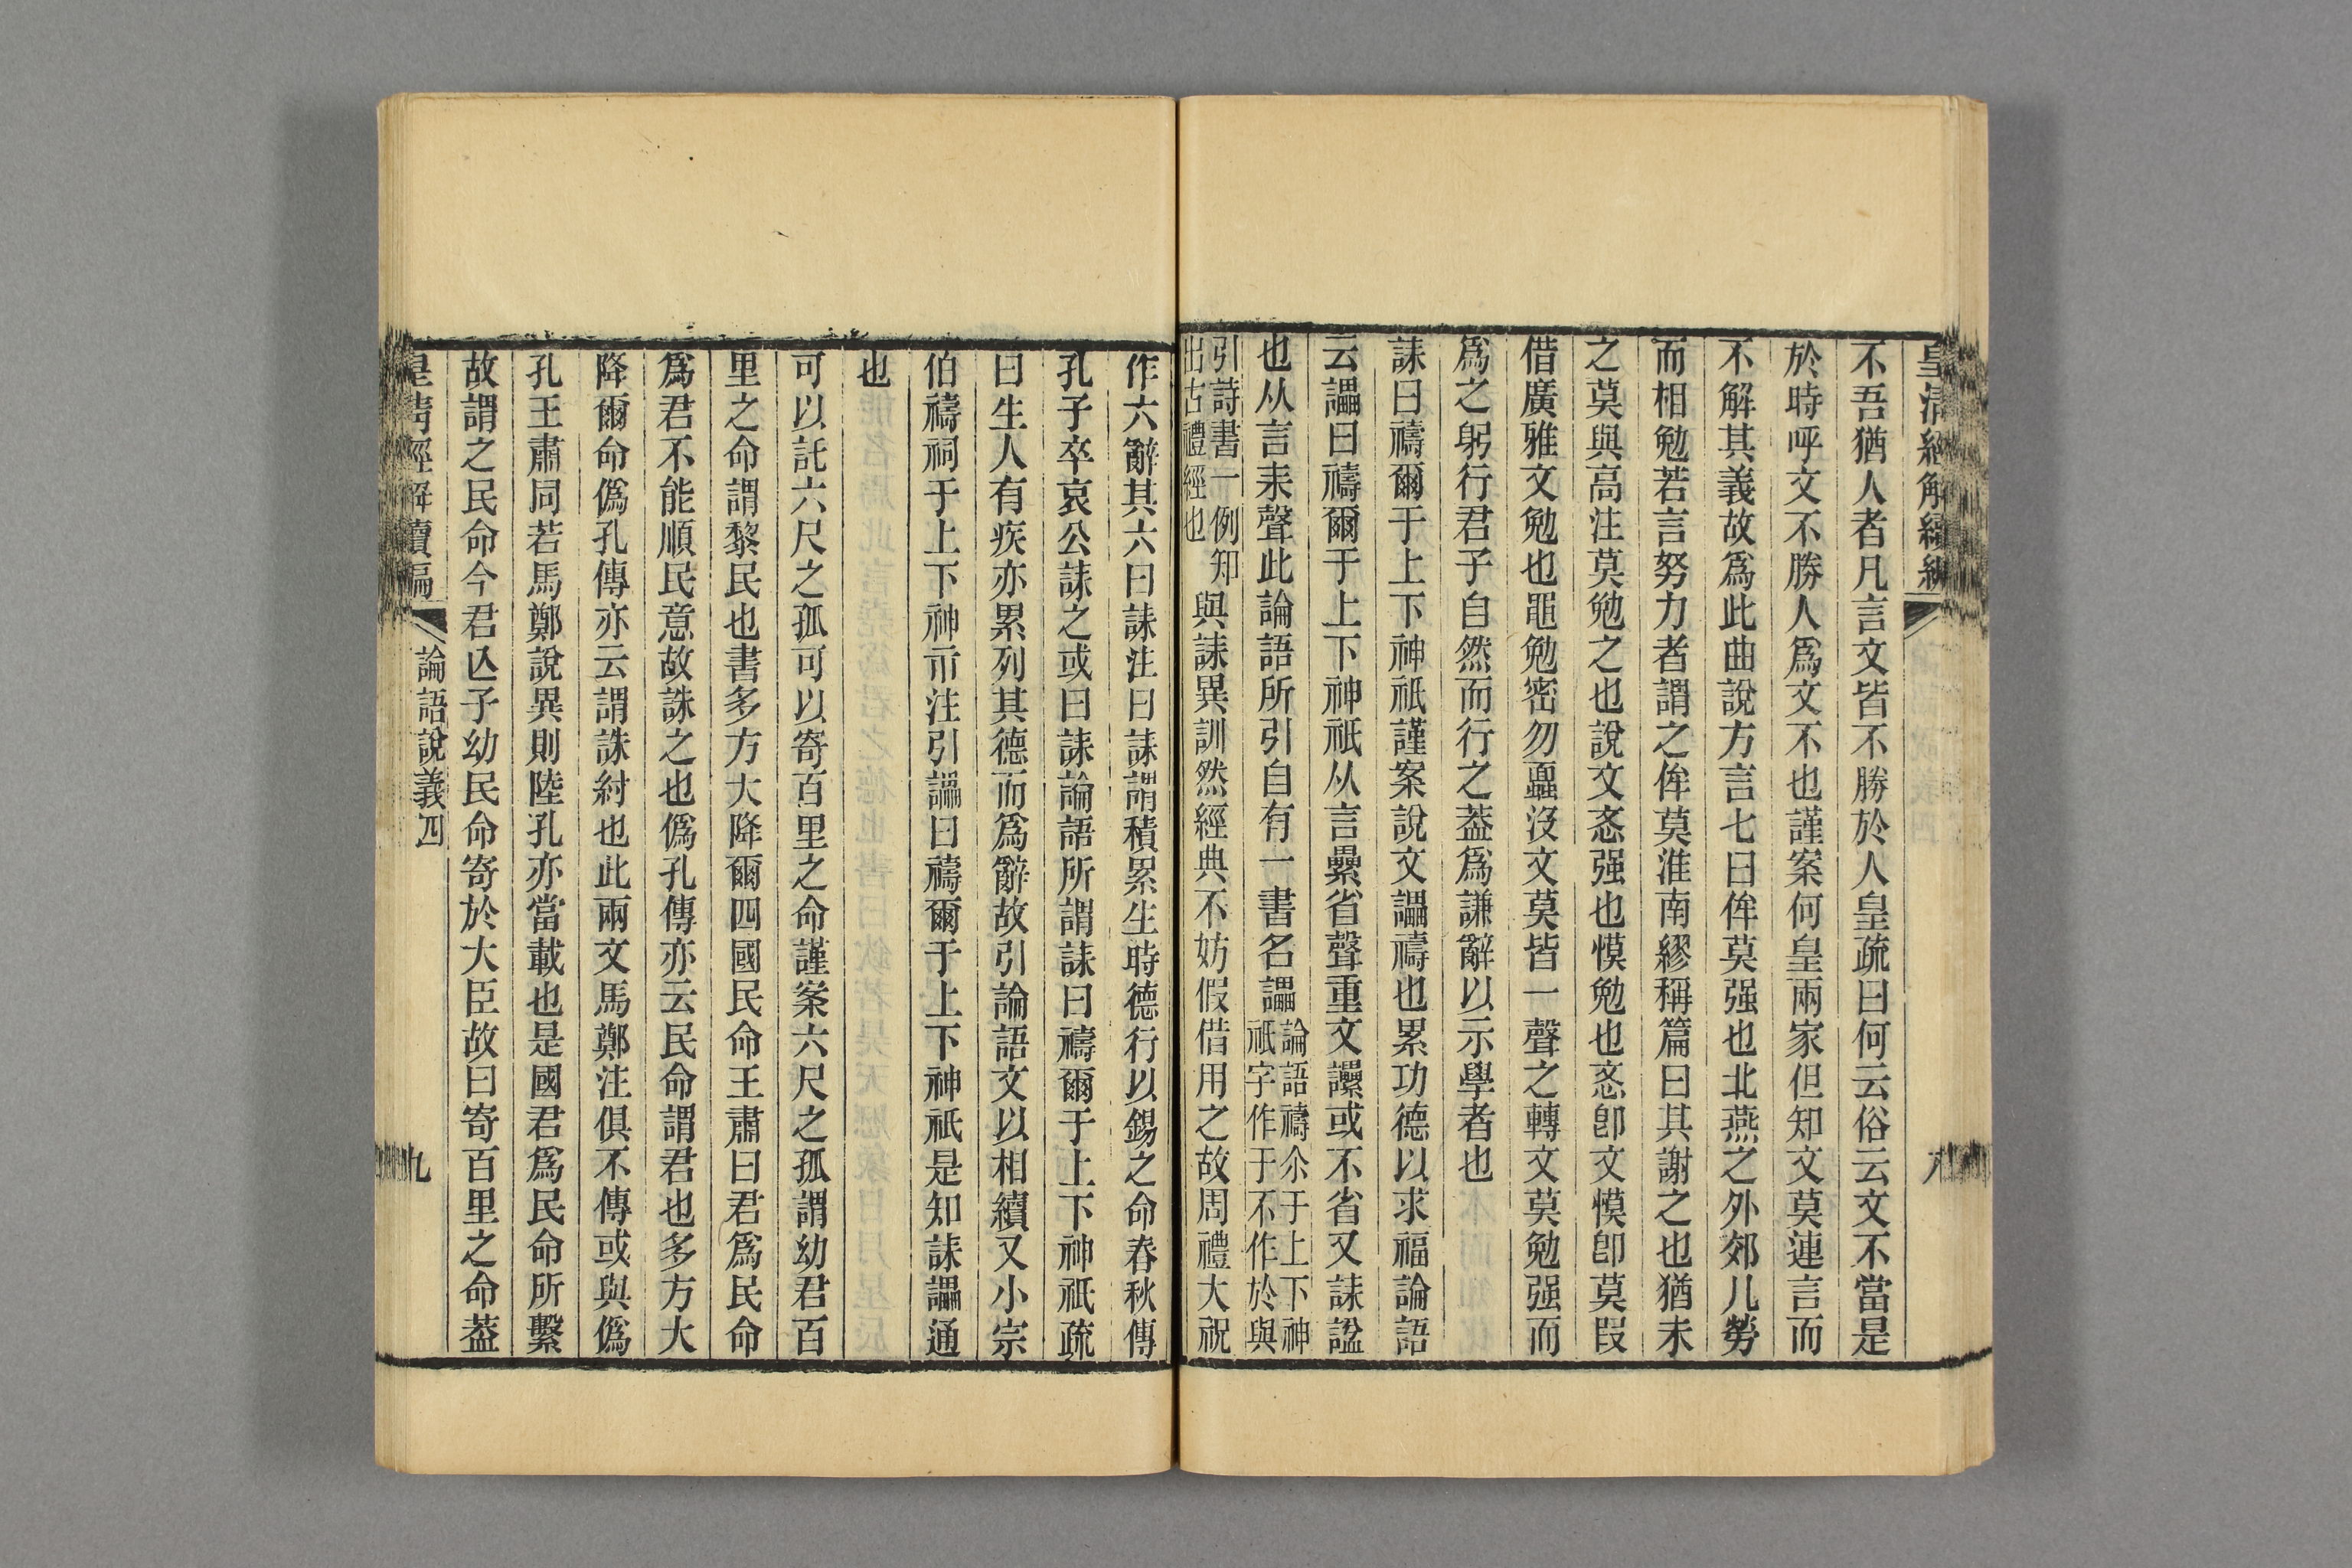 皇清經解續編
八
不吾猶人者凡言文皆不勝於人皇疏曰何云俗云文不當是
於時呼文不勝人爲文不也謹案何皇兩家但知文莫連言而
不解其義故爲此曲說方言七曰侔莫强也北燕之外郊凡勞
而相勉若言努力者謂之侔莫淮南繆稱篇曰其謝之也猶未
之莫與高注莫勉之也說文忞强也慔勉也忞卽文慔卽莫叚
借廣雅文勉也黽勉密勿蠠沒文莫皆一聲之轉文莫勉强而
爲之躬行君子自然而行之葢爲謙辭以示學者也
誄曰禱爾于上下神祇謹案說文讄禱也累功德以求福論語
云讄曰禱爾于上下神祇从言纍省聲重文讄或不省又誄諡
也从言耒聲此論語所引自有一書名讄論語禱尒于上下神
祇字作于不作於與
引詩書一例知
出古禮經也
與誄異訓然經典不妨假借用之故周禮大祝
作六辭其六曰誄注曰誄謂積累生時德行以錫之命春秋傳
孔子卒哀公誄之或曰誄論語所謂誄曰禱爾于上下神祇疏
曰生人有疾亦累列其德而爲辭故引論語文以相續又小宗
伯禱祠于上下神示注引讄曰禱爾于上下神祇是知誄讄通
也
可以託六尺之孤可以寄百里之命謹案六尺之孤謂幼君百
里之命謂黎民也書多方大降爾四國民命王肅曰君爲民命
爲君不能順民意故誅之也僞孔傳亦云民命謂君也多方大
降爾命僞孔傳亦云謂誅紂也此兩文馬鄭注俱不傳或與僞
孔王肅同若馬鄭說異則陸孔亦當載也是國君爲民命所繫
故謂之民命今君亾子幼民命寄於大臣故曰寄百里之命葢
皇清經解續編
論語說義四
九